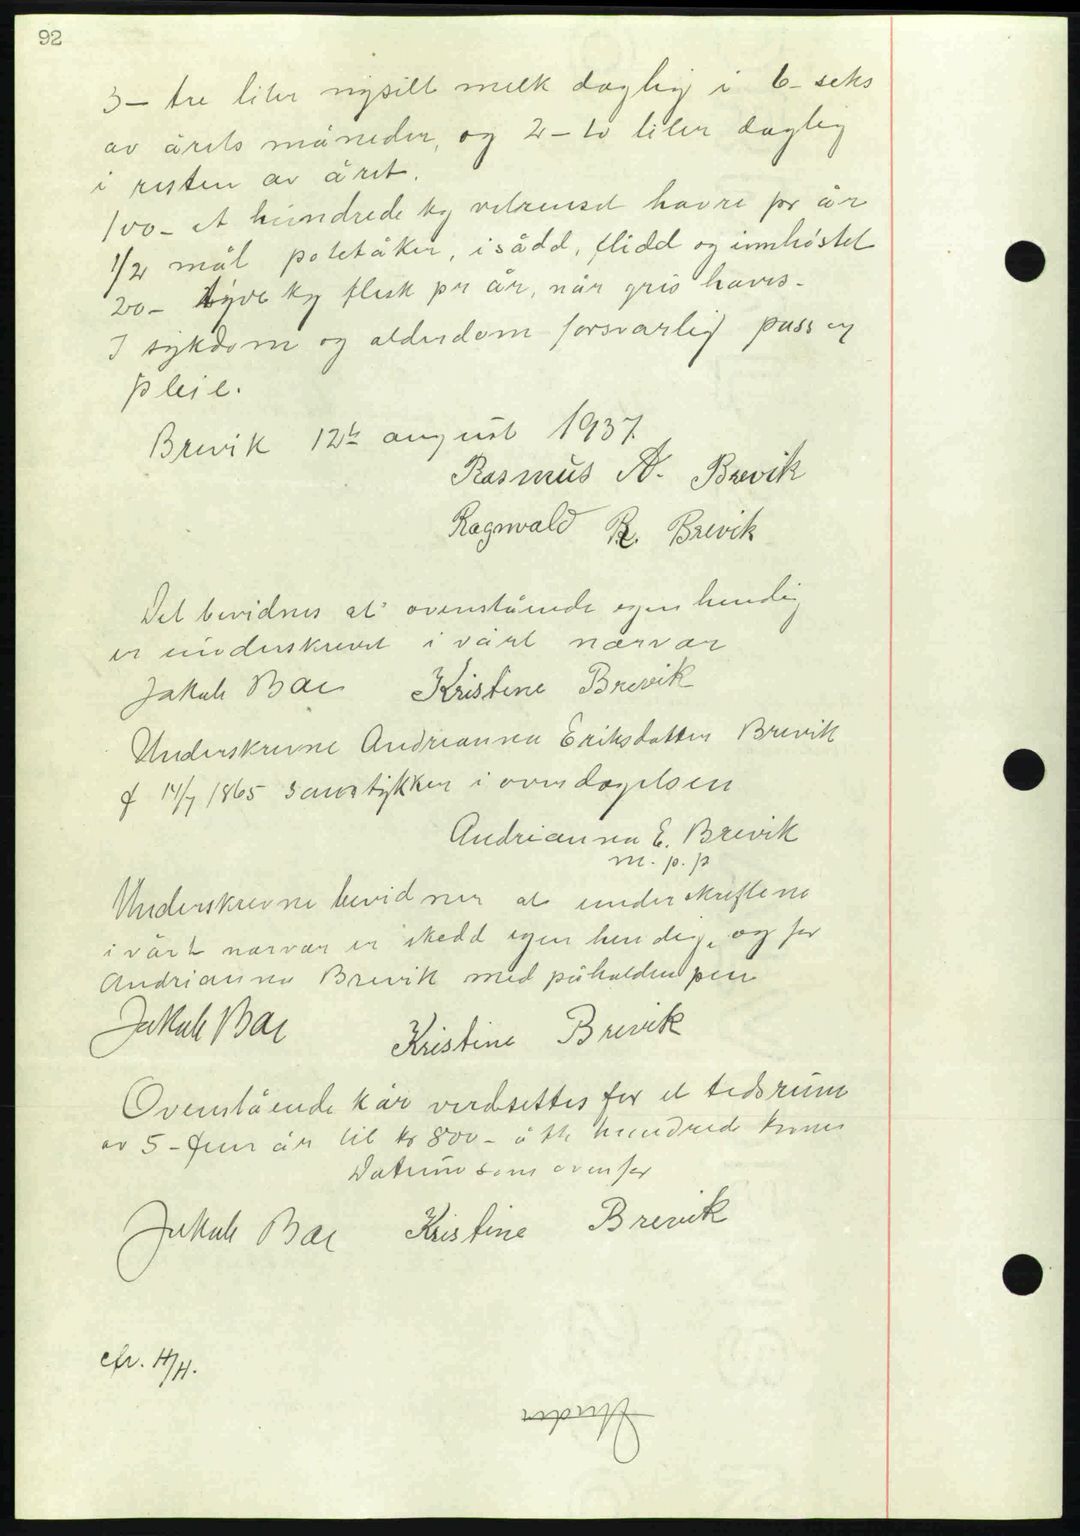 92
3 – tre liter nysilt melk daglig i 6 – seks
av årets måneder, og 2 – to liter daglig
i resten av året.
100 – et hundrede kg velrenset havre pr år
1/2 mål potetåker, isådd, flidd og innhøstet
20 – tyve kg flesk pr år, når gris haves.
I sykdom og alderdom forsvarlig pass og
pleie.
Brevik 12te august 1937.
Rasmus A. Brevik
Ragnvald R. Brevik
Det bevidnes at ovenstående egenhendig
er underskrevet i vårt nærvær
Jakob Bae Kristine Brevik
Underskrevne Andrianna Eriksdatter Brevik
f 14/7 1865 samtykker i overdragelsen
Andrianna E. Brevik
m. p. p
Underskrevne bevidner at underskriftene
i vårt nærvær er skedd egenhendig, og for
Andrianna Brevik med påholden pen
Jakob Bae Kristine Brevik
Ovenstående kår verdsettes for et tidsrum
av 5 – fem år til kr 800 – åtte hundred kroner
Datum som ovenfor
Jakob Bae Kristine Brevik
cfr. H/H.